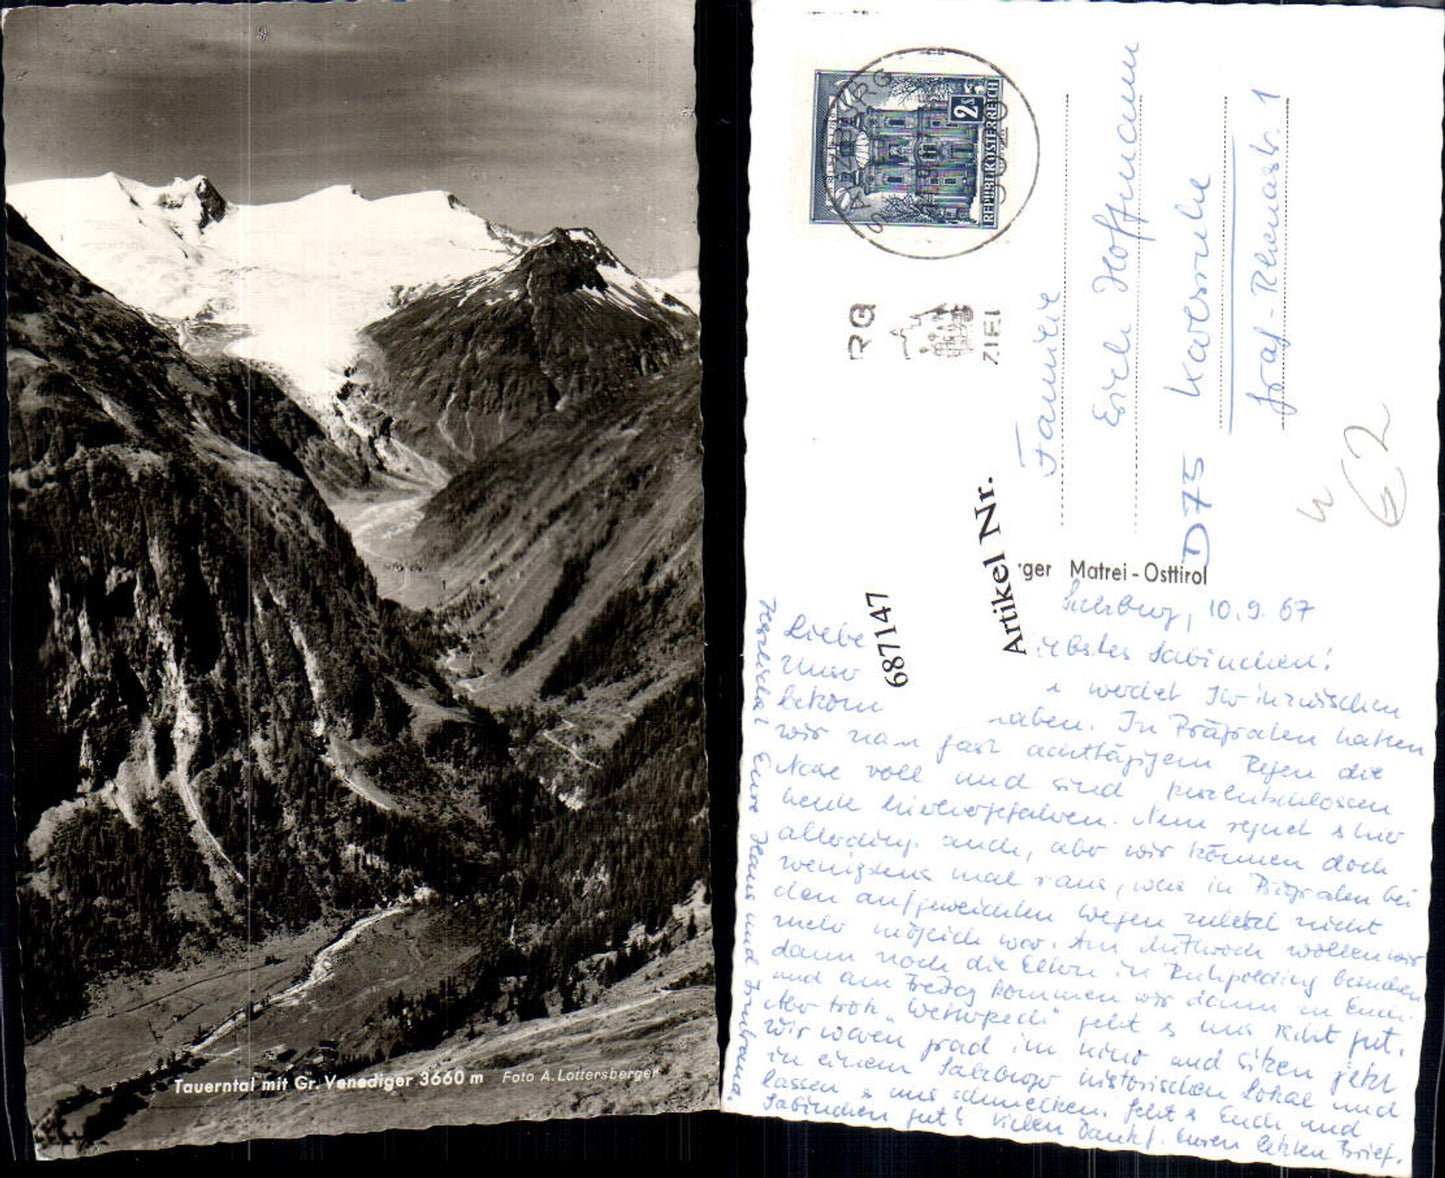 Tauerntal mit Gr. Venediger 3660 m Foto A. Lottersberger
2s
REPUBLIK ÖSTERREICH
SALZBURG
RG
ZIEL
Familie
Erich Hoffmann
D75 Karlsruhe
Graf-Rhenastr. 1
62
Artikel Nr.
687147
rger Matrei - Osttirol
Salzburg, 10.9.67
Liebe iebstes Sabinchen!
unser werdet Ihr inzwischen
bekom haben. In Prägraten hatten
wir nan fast achttägigem Regen die
Nase voll und sind kurzentschlossen
heute hierhergefahren. Nun regnet es hier
allerdings auch, aber wir können doch
wenigstens mal raus, was in Prägraten bei
den aufgeweichten Wegen zuletzt nicht
mehr möglich war. Am Mittwoch wollen wir
dann noch die Eltern in Ruhpolding
und am Freitag kommen wir dann zu Euch.
Aber trotz „Wetterpech" geht es uns recht gut.
Wir waren grad im Kino und sitzen jetzt
in einem Salzburger historischen Lokal und
lassen es uns schmecken. Geht es Euch und
Sabinchen gut? Vielen Dank f. Euren letzten Brief.
Herzlichst Eure Hans und